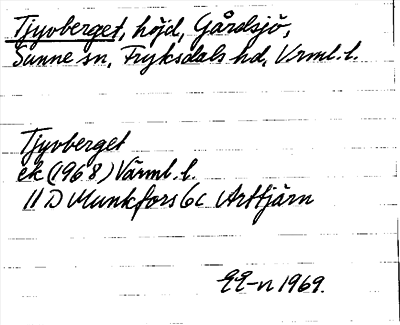 Tjyvberget, höjd, Gårdsjö,
Sunne sn, Fryksdals hd, Vrml. l.
Tjyvberget
ek (1968) Värml. l.
11 D Munkfors 6c Arttjärn
1969.